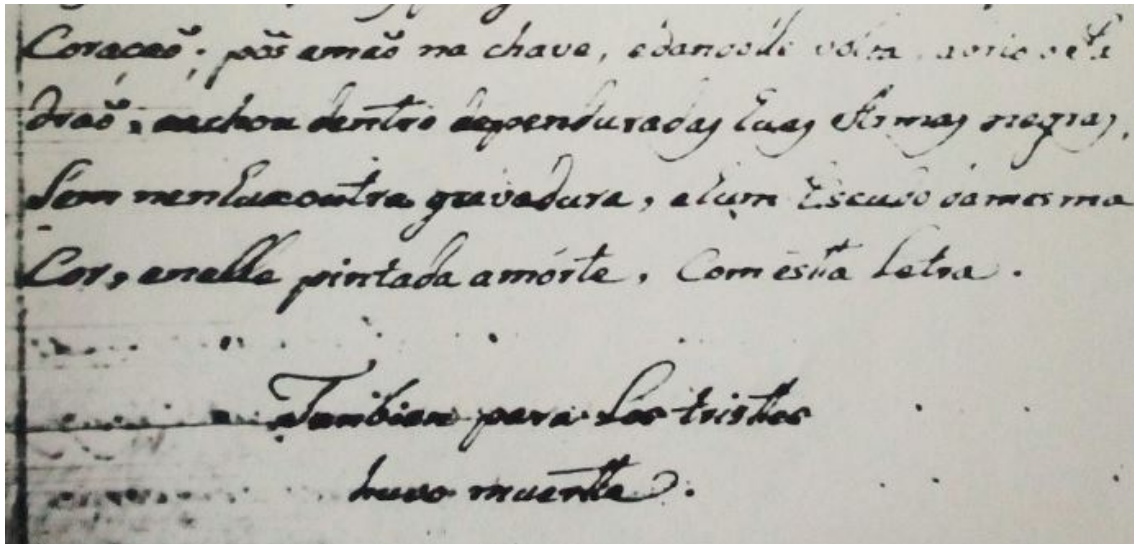 Coraçaõ; pôs amaõ na chave, edandolle volta, abrio o Pa
draõ; aachou dentro dependuradas huas Armas negras,
Sem nenhuaoutra gravadura, ehum Escudo damesma
Cor, enelle pintada amórte, Comésta letra.
Tambien para los tristes
huvo muerte.